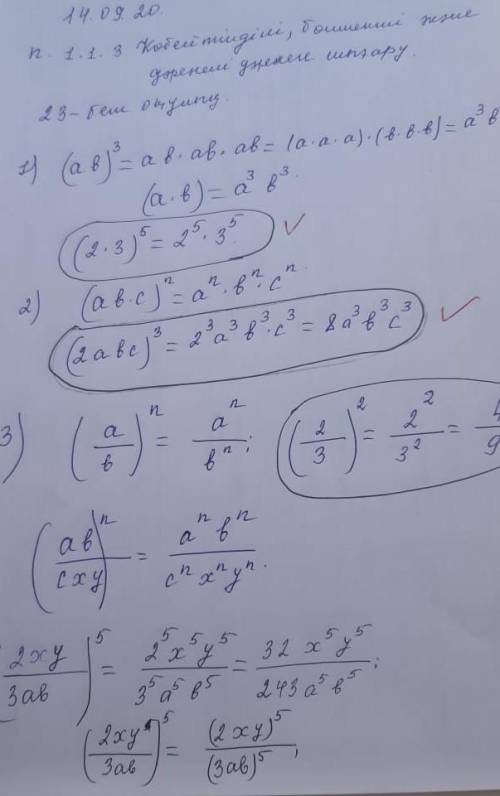 14.09.20.
п. 1.1.3 Көбейтіндіні, бөлшекті және
дәрежені дәрежеге шығару.
23-бет оқулық.
1) (ab)³ = ab · ab · ab = (a·a·a) · (b·b·b) = a³ b
(a·b) = a³ b³.
(2·3)⁵ = 2⁵ · 3⁵
2) (ab·c)ⁿ = aⁿ · bⁿ · cⁿ
(2abc)³ = 2³a³b³·c³ = 8a³b³c³
3) (a/b)ⁿ = aⁿ/bⁿ; (2/3)² = 2²/3² = 4/9
(ab/cxy)ⁿ = aⁿbⁿ/cⁿxⁿyⁿ.
(2xy/3ab)⁵ = 2⁵x⁵y⁵/3⁵a⁵b⁵ = 32x⁵y⁵/243a⁵b⁵;
(2xy/3ab)⁵ = (2xy)⁵/(3ab)⁵;